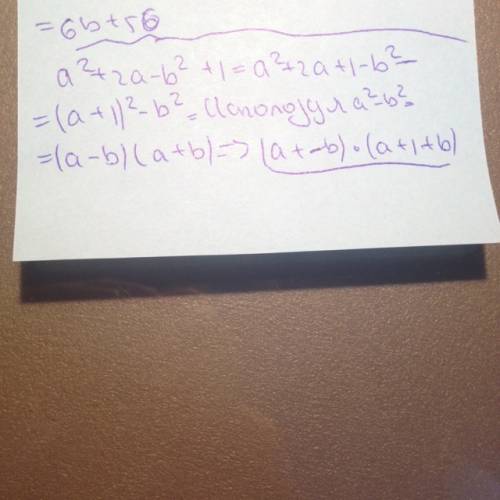 =6b+56
a²+2a-b²+1=a²+2a+1-b²=
=(a+1)²-b²= Используя a²-b²=
=(a-b)(a+b)=> (a+-b)·(a+1+b)